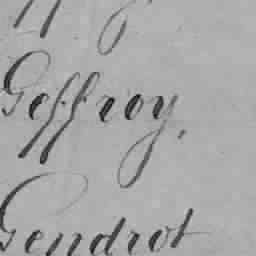 Geffroy,
Gendrot